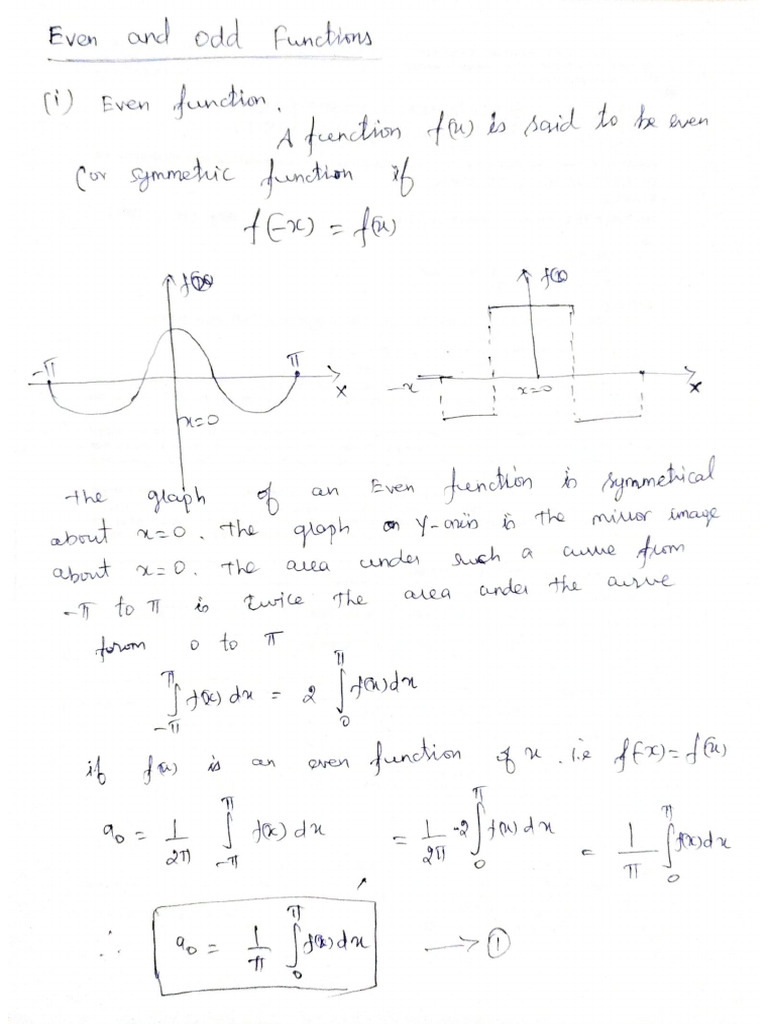 Even and odd Functions
(i) Even function.
A function f(x) is said to be even
(or symmetric function if
f(-x) = f(x)
f(x) f(x)
-π π x -x x=0 x
x=0
the graph of an Even function is symmetrical
about x=0. the graph on Y-axis is the mirror image
about x=0. the area under such a curve from
-π to π is twice the area under the curve
from 0 to π
∫_{-π}^{π} f(x) dx = 2 ∫_0^π f(x) dx
if f(x) is an even function of x. i.e f(-x) = f(x)
a0 = 1/2π ∫_{-π}^{π} f(x) dx = 1/2π ·2 ∫_0^π f(x) dx = 1/π ∫_0^π f(x) dx
∴ a0 = 1/π ∫_0^π f(x) dx → ①